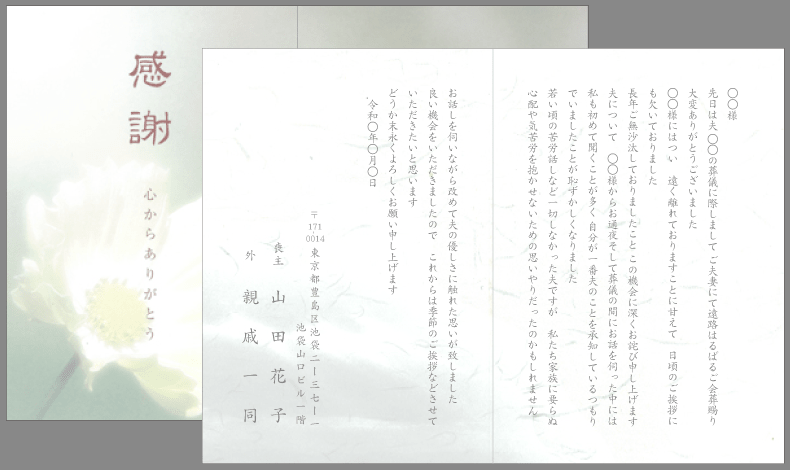 感謝
心からありがとう
〇〇様
先日は夫〇〇の葬儀に際しまして ご夫妻にて遠路はるばるご会葬賜り
大変ありがとうございました
〇〇様にはつい 遠く離れておりますことに甘えて 日頃のご挨拶に
も欠いておりました
長年ご無沙汰しておりましたこと この機会に深くお詫び申し上げます
夫について 〇〇様からお通夜そして葬儀の間にお話を伺った中には
私も初めて聞くことが多く 自分が一番夫のことを承知しているつもり
でいましたことが恥ずかしくなりました
若い頃の苦労話しなど一切しなかった夫ですが 私たち家族に要らぬ
心配や気苦労を抱かせないための思いやりだったのかもしれません
お話しを伺いながら改めて夫の優しさに触れた思いが致しました
良い機会をいただきましたので これからは季節のご挨拶などさせて
いただきたいと思います
どうか末永くよろしくお願い申し上げます
令和〇年〇月〇日
〒171-0014 東京都豊島区池袋二ー三七ー一
池袋山口ビル一階
喪主 山田花子
外 親戚一同